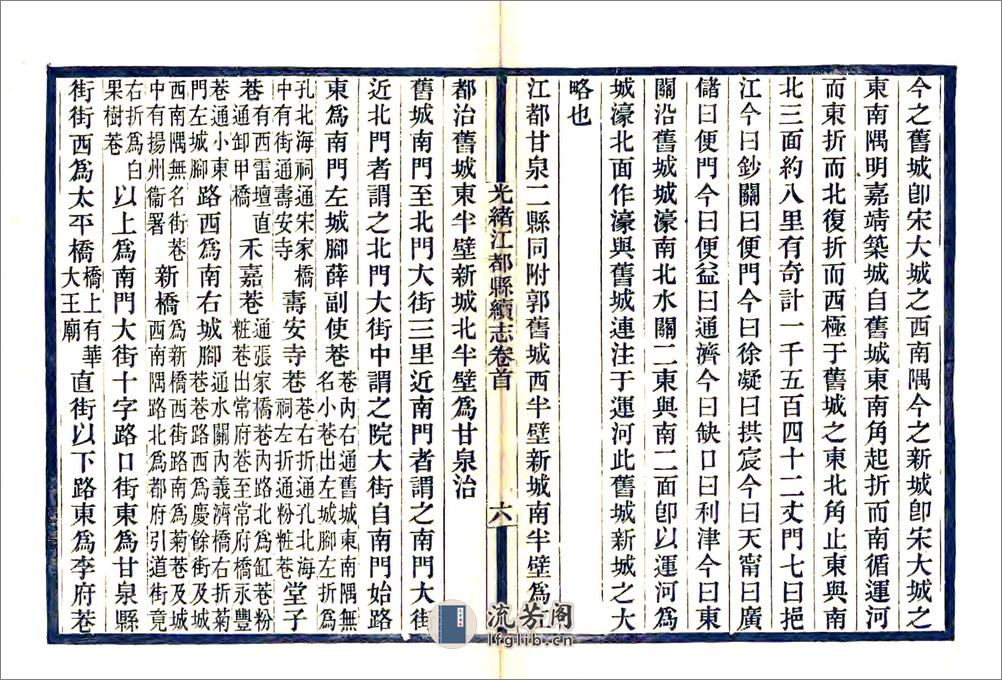 今之舊城卽宋大城之西南隅今之新城卽宋大城之
東南隅明嘉靖築城自舊城東南角起折而南循運河
而東折而北復折而西極于舊城之東北角止東與南
北三面約八里有奇計一千五百四十二丈門七曰挹
江今曰鈔關曰便門今曰徐凝曰拱宸今曰天甯曰廣
儲曰便門今曰便益曰通濟今曰缺口曰利津今曰東
關沿舊城城濠南北水關二東與南二面卽以運河爲
城濠北面作濠與舊城連注于運河此舊城新城之大
略也
江都甘泉二縣同附郭舊城西半壁新城南半壁爲
光緒江都縣續志卷首 六
都治舊城東半壁新城北半壁爲甘泉治
舊城南門至北門大街三里近南門者謂之南門大街
近北門者謂之北門大街中謂之院大街自南門始路
東爲南門左城腳薛副使巷巷內右通舊城東南隅無名小巷出左城腳左折爲
孔北海祠通宋家橋中有街通壽安寺壽安寺巷巷右折通孔北海祠左折通粉粧巷堂子
巷有西雷壇直通卸甲橋禾嘉巷通張家橋巷內路北爲缸巷粉粧巷出常府巷至常府橋永豐
巷通小東門左城腳路西爲南右城腳通水關內義濟橋右折菊巷巷路西爲慶餘街及城
西南隅無名街巷中有揚州衞署新橋爲新橋西街路南爲菊巷及城西南隅路北爲都府引道街竟
右折爲白果樹巷以上爲南門大街十字路口街東爲甘泉縣
街街西爲太平橋橋上有華大王廟直街以下路東爲李府巷
流芳阁
lfglib.cn